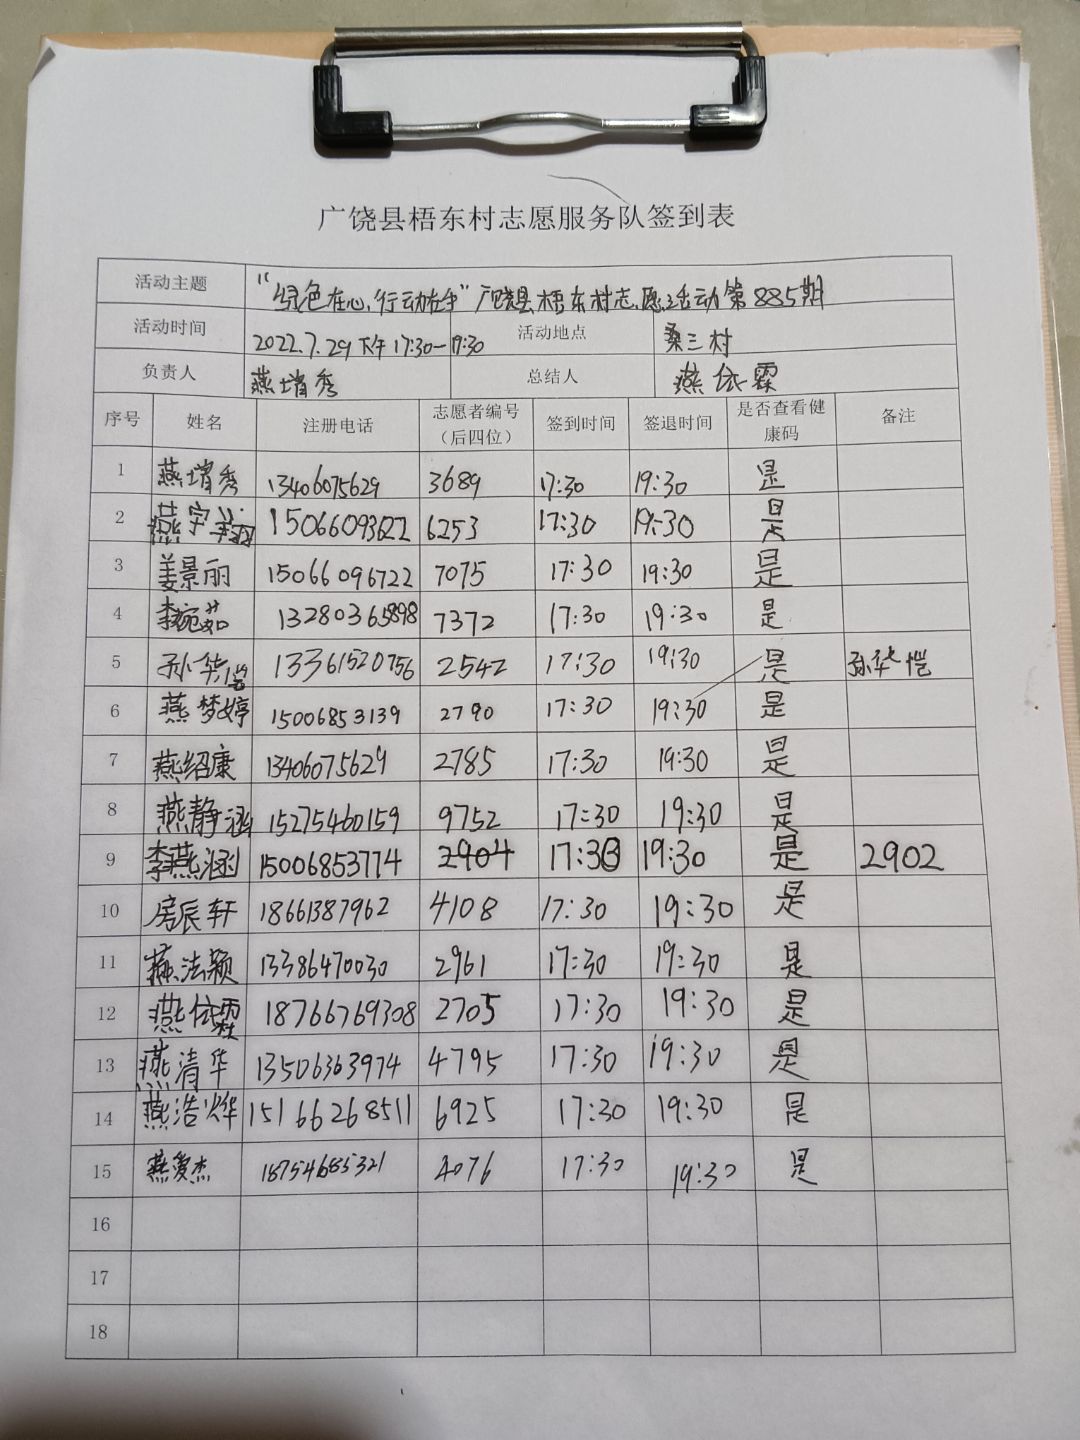 广饶县梧东村志愿服务队签到表
活动主题 “绿色在心,行动在手”广饶县梧东村志愿活动第885期
活动时间 2022.7.29下午17:30-19:30 活动地点 桑三村
负责人 燕增秀 总结人 燕依霖
序号 姓名 注册电话 志愿者编号(后四位) 签到时间 签退时间 是否查看健康码 备注
1 燕增秀 13406075629 3689 17:30 19:30 是
2 燕宇翔 15066093622 6253 17:30 19:30 是
3 姜景丽 15066096722 7075 17:30 19:30 是
4 李婉茹 13280365898 7372 17:30 19:30 是
5 孙华恺 13361520756 2542 17:30 19:30 是 孙华恺
6 燕梦婷 15006853139 2790 17:30 19:30 是
7 燕绍康 13406075629 2785 17:30 19:30 是
8 燕静涵 15275460159 9752 17:30 19:30 是
9 李燕涵 15006853774 2904 17:30 19:30 是 2902
10 房辰轩 18661387962 4108 17:30 19:30 是
11 燕法颖 13386470030 2961 17:30 19:30 是
12 燕依霖 18766769308 2705 17:30 19:30 是
13 燕清华 13506363974 4795 17:30 19:30 是
14 燕浩烨 15166268511 6925 17:30 19:30 是
15 燕爱杰 18754685321 4076 17:30 19:30 是
16
17
18